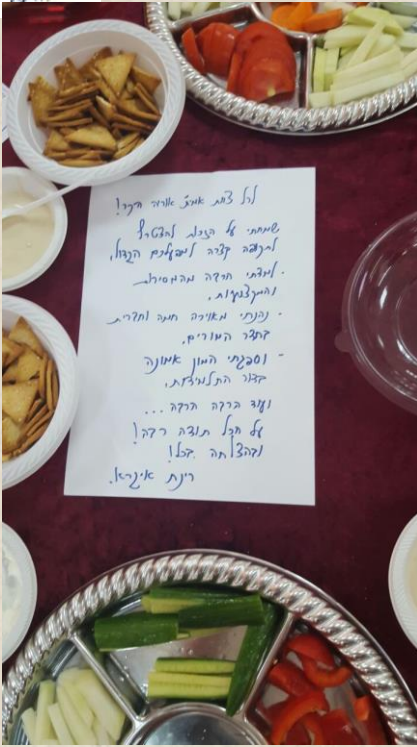 לכל צוות אמית אורה היקר!
שמחתי על הזכות להצטרף
לתקופה קצרה למפעלכם הגדול,
- למדתי הרבה מהמסירות
והמקצועיות,
- נהנתי מאוירה חמה וחברית
בחדר המורים,
- וספגתי המון אמונה
בדור התלמידות,
ועוד הרבה הרבה...
על הכל תודה רבה!
ובהצלחה בכל!
רינת